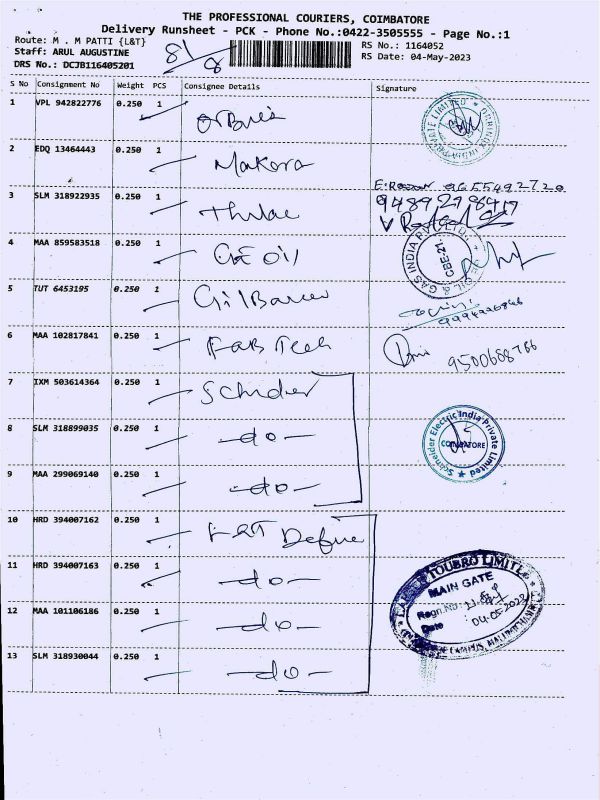 THE PROFESSIONAL COURIERS, COIMBATORE
Delivery Runsheet - PCK - Phone No.:0422-3505555 - Page No.:1
Route: M . M PATTI {L&T}
Staff: ARUL AUGUSTINE
DRS No.: DCJB116405201
8/8
RS No.: 1164052
RS Date: 04-May-2023
S No Consignment No Weight PCS Consignee Details Signature
1 VPL 942822776 0.250 1
2 EDQ 13464443 0.250 1 Makora
E. 9655492720
3 SLM 318922935 0.250 1
9489279847
4 MAA 859583518 0.250 1 GE OIL
OIL & GAS INDIA PVT. LTD.
CBE-21.
5 TUT 6453195 0.250 1 GilBarco
6 MAA 102817841 0.250 1 FAB Tech
9500688766
7 IXM 503614364 0.250 1
8 SLM 318899035 0.250 1 -do-
Schneider Electric India Private Limited
COIMBATORE
9 MAA 299069140 0.250 1 -do-
10 HRD 394007162 0.250 1 L&T Define
LARSEN & TOUBRO LIMITED
MAIN GATE
11 HRD 394007163 0.250 1 -do-
Regn.No:
Date : 04-05-2023
12 MAA 101106186 0.250 1 -do-
13 SLM 318930044 0.250 1 -do-